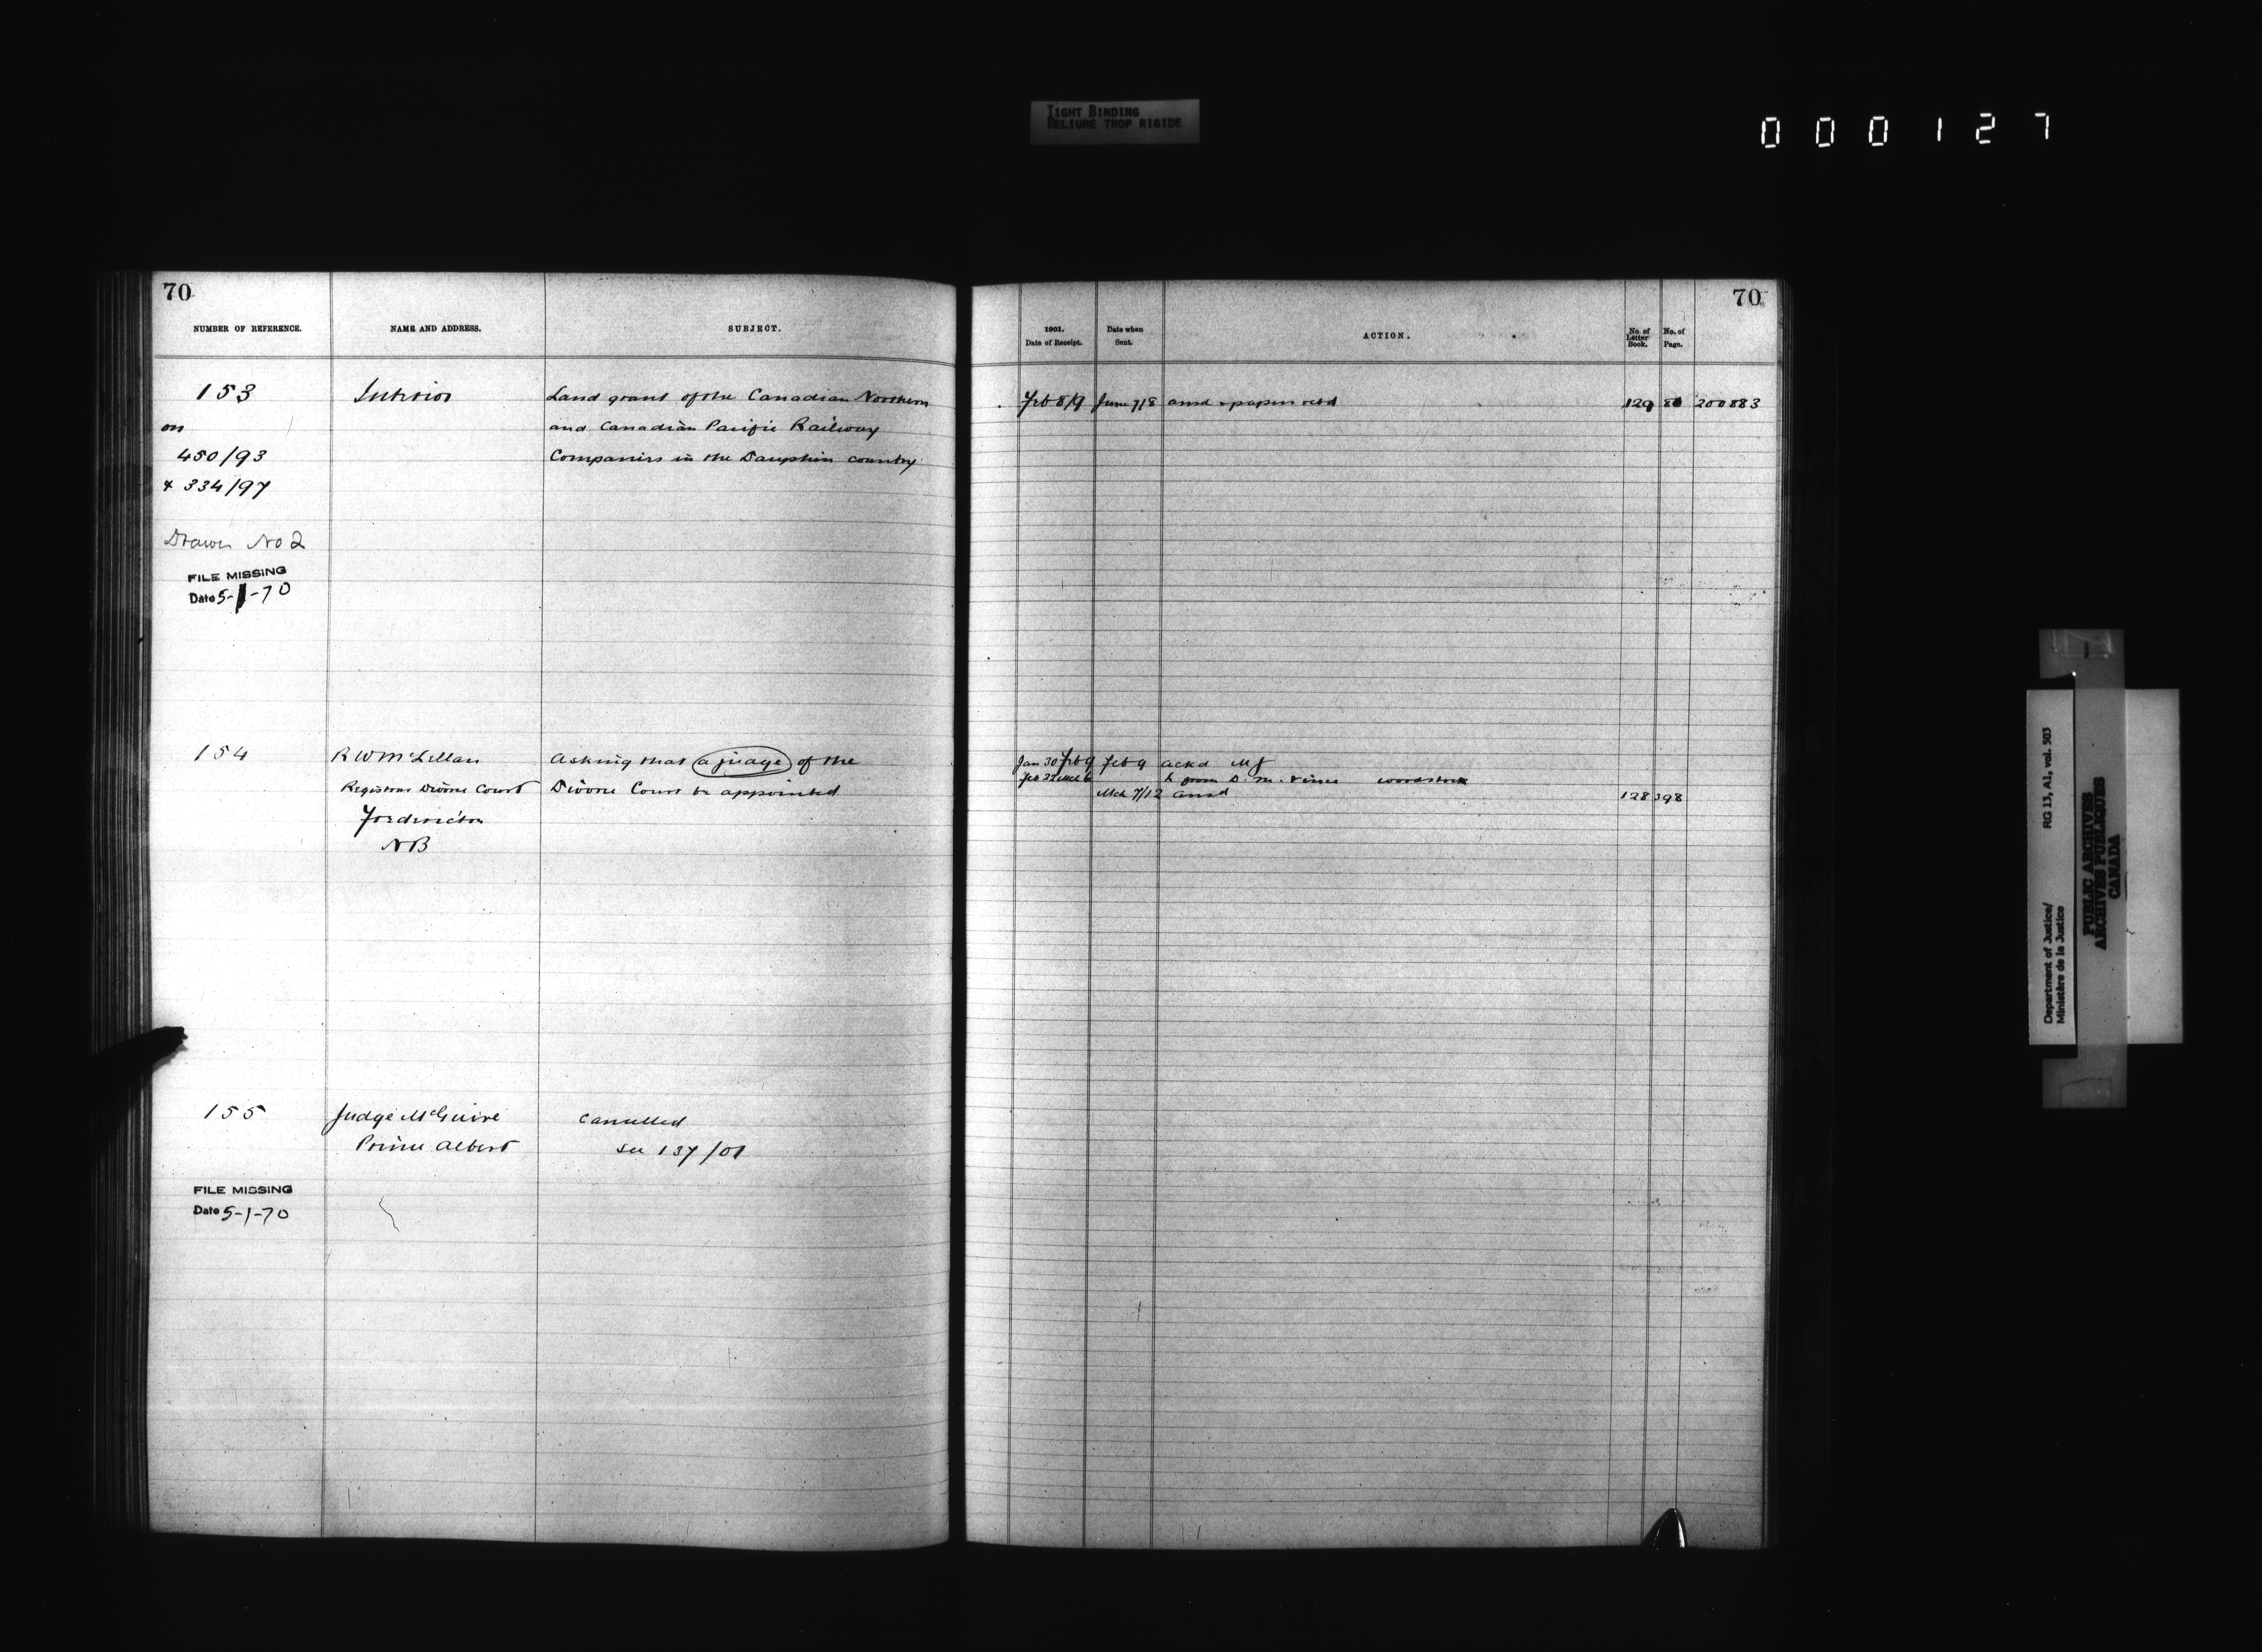 TIGHT BINDING
RELIURE TROP RIGIDE
000127
70
NUMBER OF REFERENCE. NAME AND ADDRESS. SUBJECT.
153 Interior Land grant of the Canadian Northern
on and Canadian Pacific Railway
450/93 Companies in the Dauphin country
& 334/97
Drawer No 2
FILE MISSING
Date 5-1-70
154 R W McLellan Asking that a judge of the
Registrar Divorce Court Divorce Court be appointed
Fredericton
NB
155 Judge McGuire Cancelled
Prince Albert see 137/01
FILE MISSING
Date 5-1-70
70
1901. Date of Receipt. Date when Sent. ACTION. No. of Letter Book. No. of Page.
Feb 8/9 June 7/8 ansd & papers retd 129 200883
Jan 30 Feb 9 Feb 9 ackd MJ
Feb 22 Mch 6 from D. M.
Mch 7/12 ansd 128 398
Department of Justice/ RG 13, A1, vol. 503
Ministère de la Justice
PUBLIC ARCHIVES
ARCHIVES PUBLIQUES
CANADA